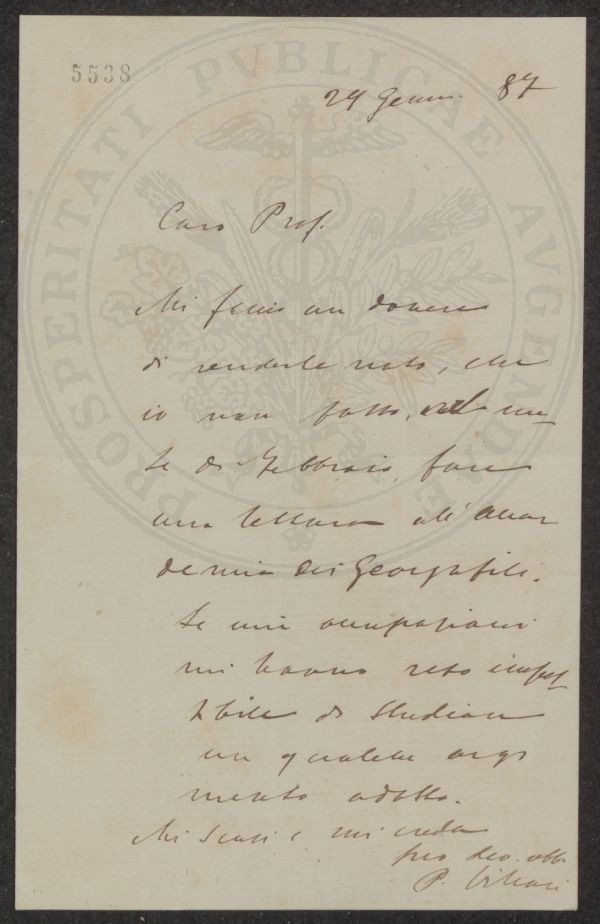 5538
PROSPERITATI PVBLICAE AVGENDAE
24 Genn. 87
Caro Prof.
Mi feci un dovere
di renderle noto, che
io non posso, nel me-
se di Febbraio, fare
una lettura all'Acca
demia dei Georgofili.
Le mie occupazioni
mi hanno reso impos
sibile di studiare
un qualche argo
mento adatto.
Mi scusi e mi creda
suo dev. obb
P. Villari